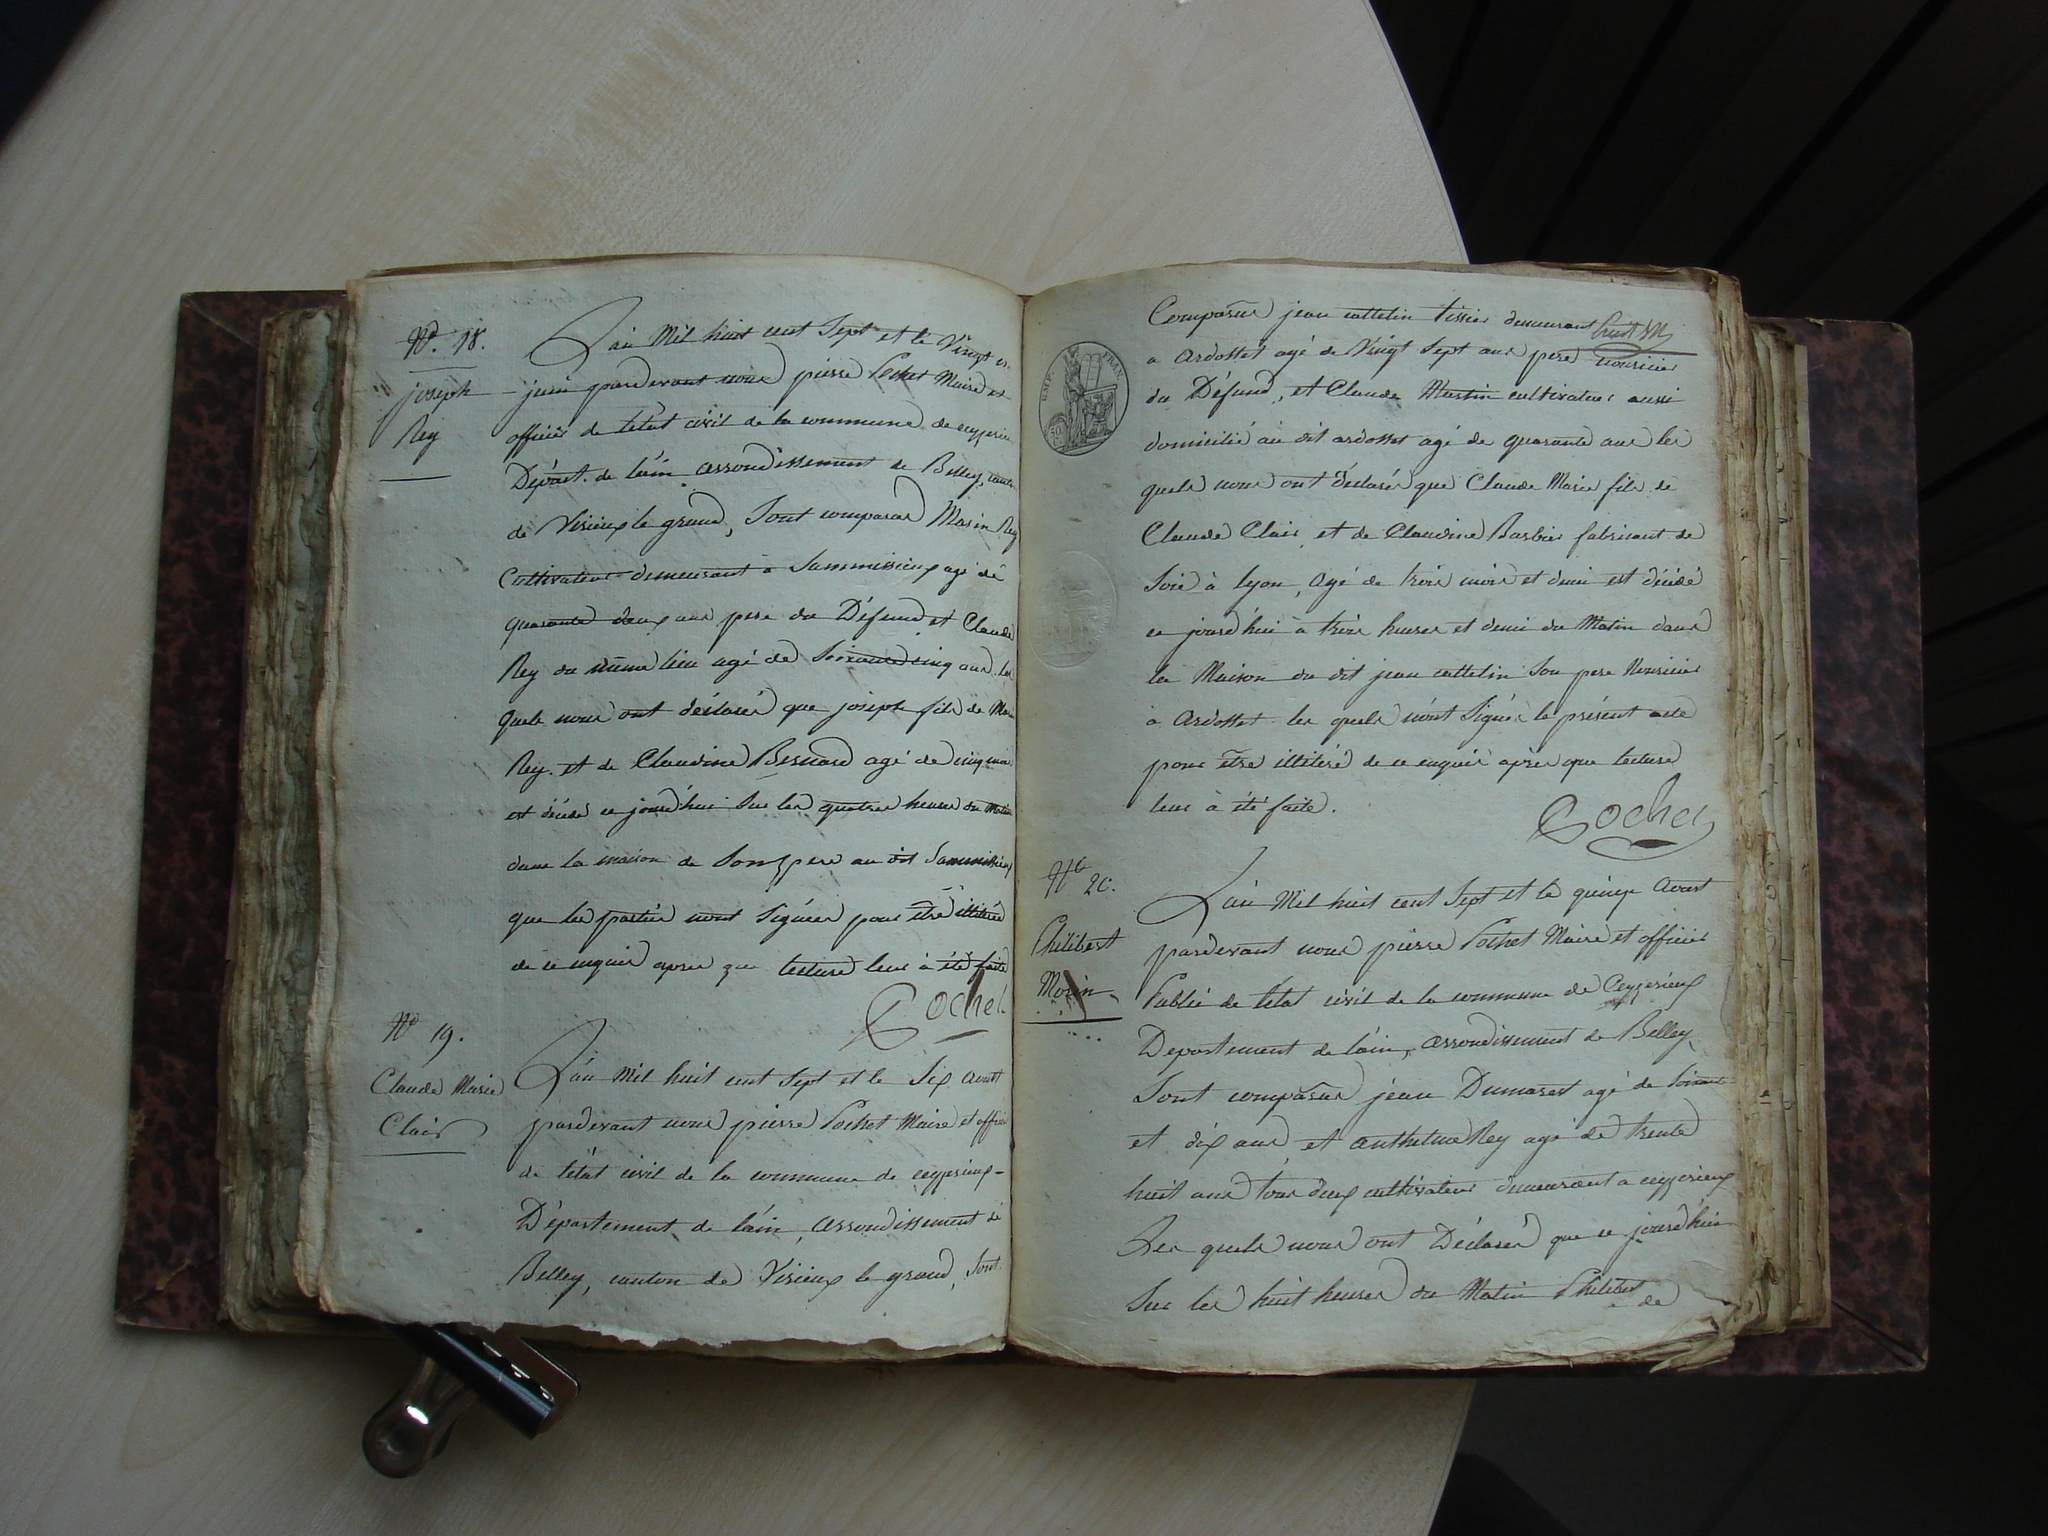 No. 18.
joseph
Rey
L'an Mil huit cent Sept et le Vingt
juin pardevant nous pierre Pochet Maire et
officier de l'état civil de la commune de ceyzerieu
Départ. de l'ain arrondissement de Belley, canton
de Virieux le grand, Sont comparus Marin Rey
Cultivateur demeurant à Sammissieux agé de
quarante deux ans pere du Défunt et Claude
Rey du même lieu agé de Soixante cinq ans les
quels nous ont déclaré que joseph fils de Marin
Rey et de Claudine Bernard agé de cinq mois
est décédé ce jourd'hui Sur les quatres heures du Matin
dans la maison de Son pere au dit Sammissieux
que les parties n'ont Signées pour être illitérés
de ce enquis apres que lecture leur à été faite
Pochet
No 19.
Claude Marie
Clair
L'an Mil huit cent Sept et le Six Aoust
pardevant nous pierre Pochet Maire et officier
de l'état civil de la commune de ceyzerieux
Département de l'ain, arrondissement de
Belley, canton de Virieux le grand, Sont
EMP. FRAN.
50
Comparus jean cattelin tissier demeurant
a Ardosset agé de Vingt Sept ans pere nouricier
du Défunt, et Claude Martin cultivateur aussi
domicilié au dit ardosset agé de quarante ans les
quels nous ont déclaré que Claude Marie fils de
Claude Clair et de Claudine Barbier fabricant de
Soie à Lyon, agé de trois mois et demi est décédé
ce jourd'hui à trois heures et demi du Matin dans
la Maison du dit jean cattelin Son pere Nouricier
à Ardosset les quels n'ont Signés le présent acte
pour être illitéré de ce enquis après que lecture
leur à été faite.
Pochet
No 20.
Philibert
Morin
L'an Mil huit cent Sept et le quinze Aoust
pardevant nous pierre Pochet Maire et officier
Public de l'état civil de la commune de Ceyzerieux
Departement de l'ain, arrondissement de Belley
Sont comparus jean Dumarest agé de Soixante
et dix ans et anthelme Rey agé de trente
huit ans tous deux cultivateur demeurant a ceyzerieux
Les quels nous ont Déclaré que ce jourd'hui
Sur les huit heures du Matin Philibert
de